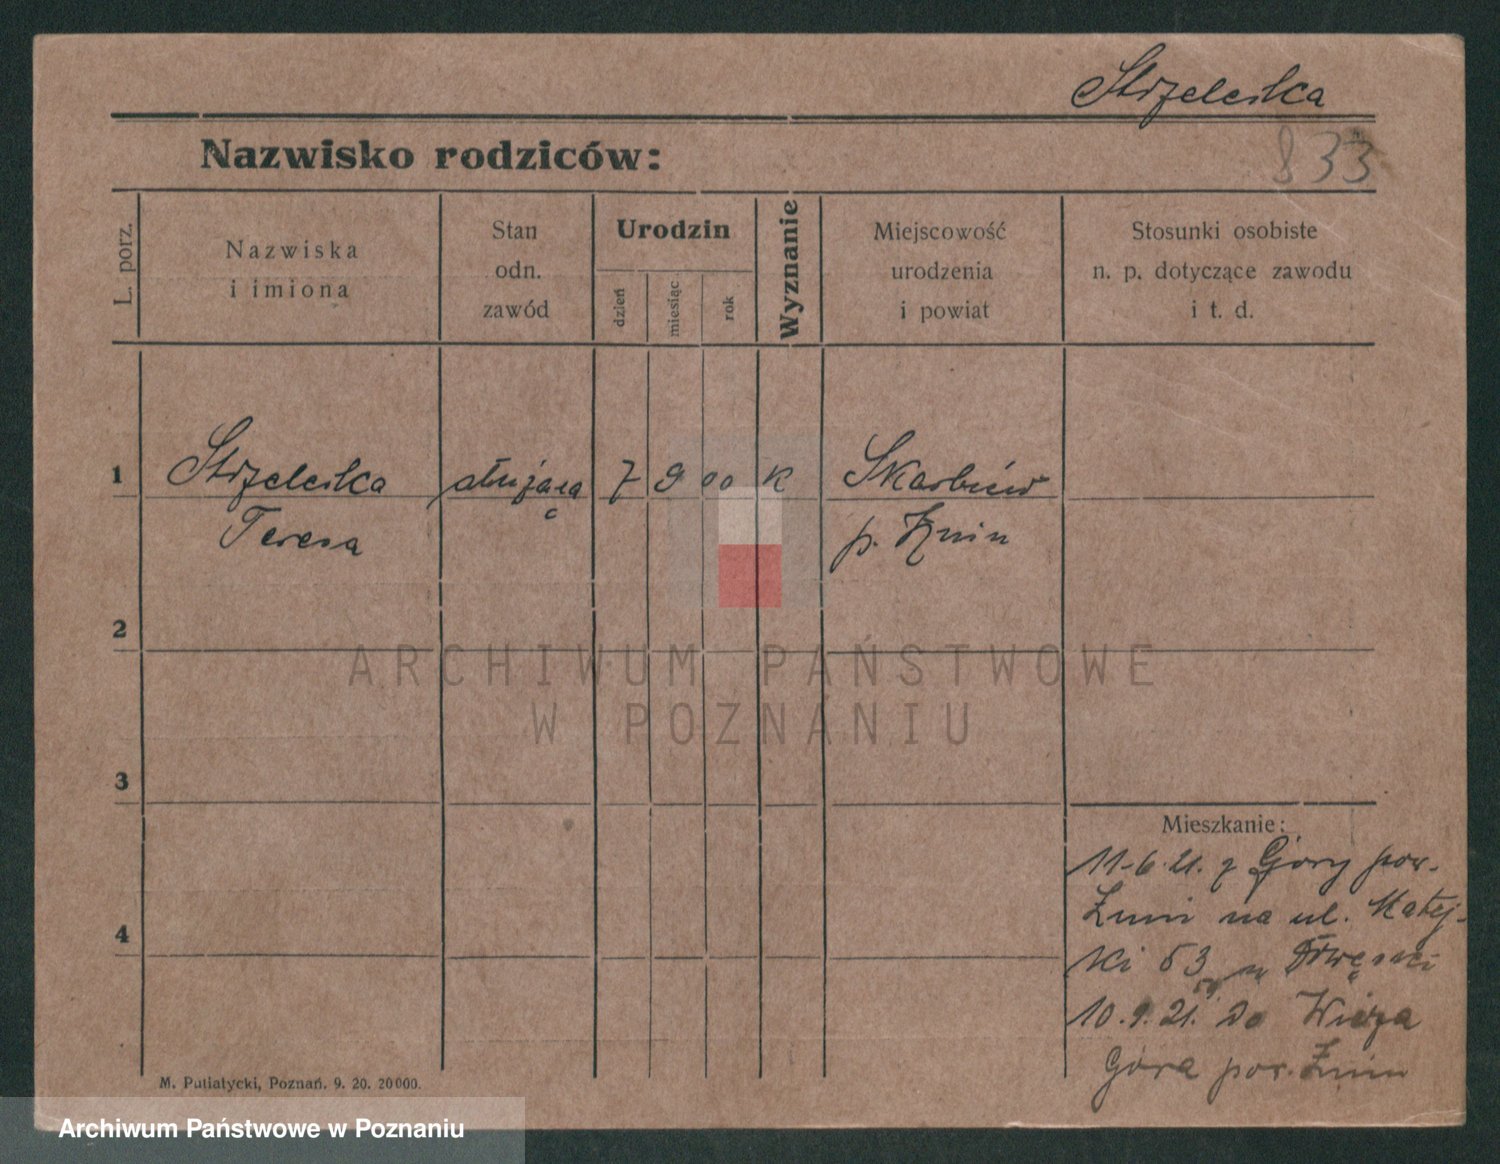 Strzelecka
833
Nazwisko rodziców:
L. porz.
Nazwiska
i imiona
Stan
odn.
zawód
Urodzin
dzień
miesiąc
rok
Wyznanie
Miejscowość
urodzenia
i powiat
Stosunki osobiste
n. p. dotyczące zawodu
i t. d.
1
Strzelecka służąca 7 9 00 K
Teresa p. Żnin
2
ARCHIWUM PAŃSTWOWE
W POZNANIU
3
Mieszkanie:
11-6.21. z Góry pow.
4
Żnin na ul. Matej-
ki 53 u
10.9.21. do
Góra pow. Żnin
M. Putiatycki, Poznań. 9. 20. 20000.
Archiwum Państwowe w Poznaniu